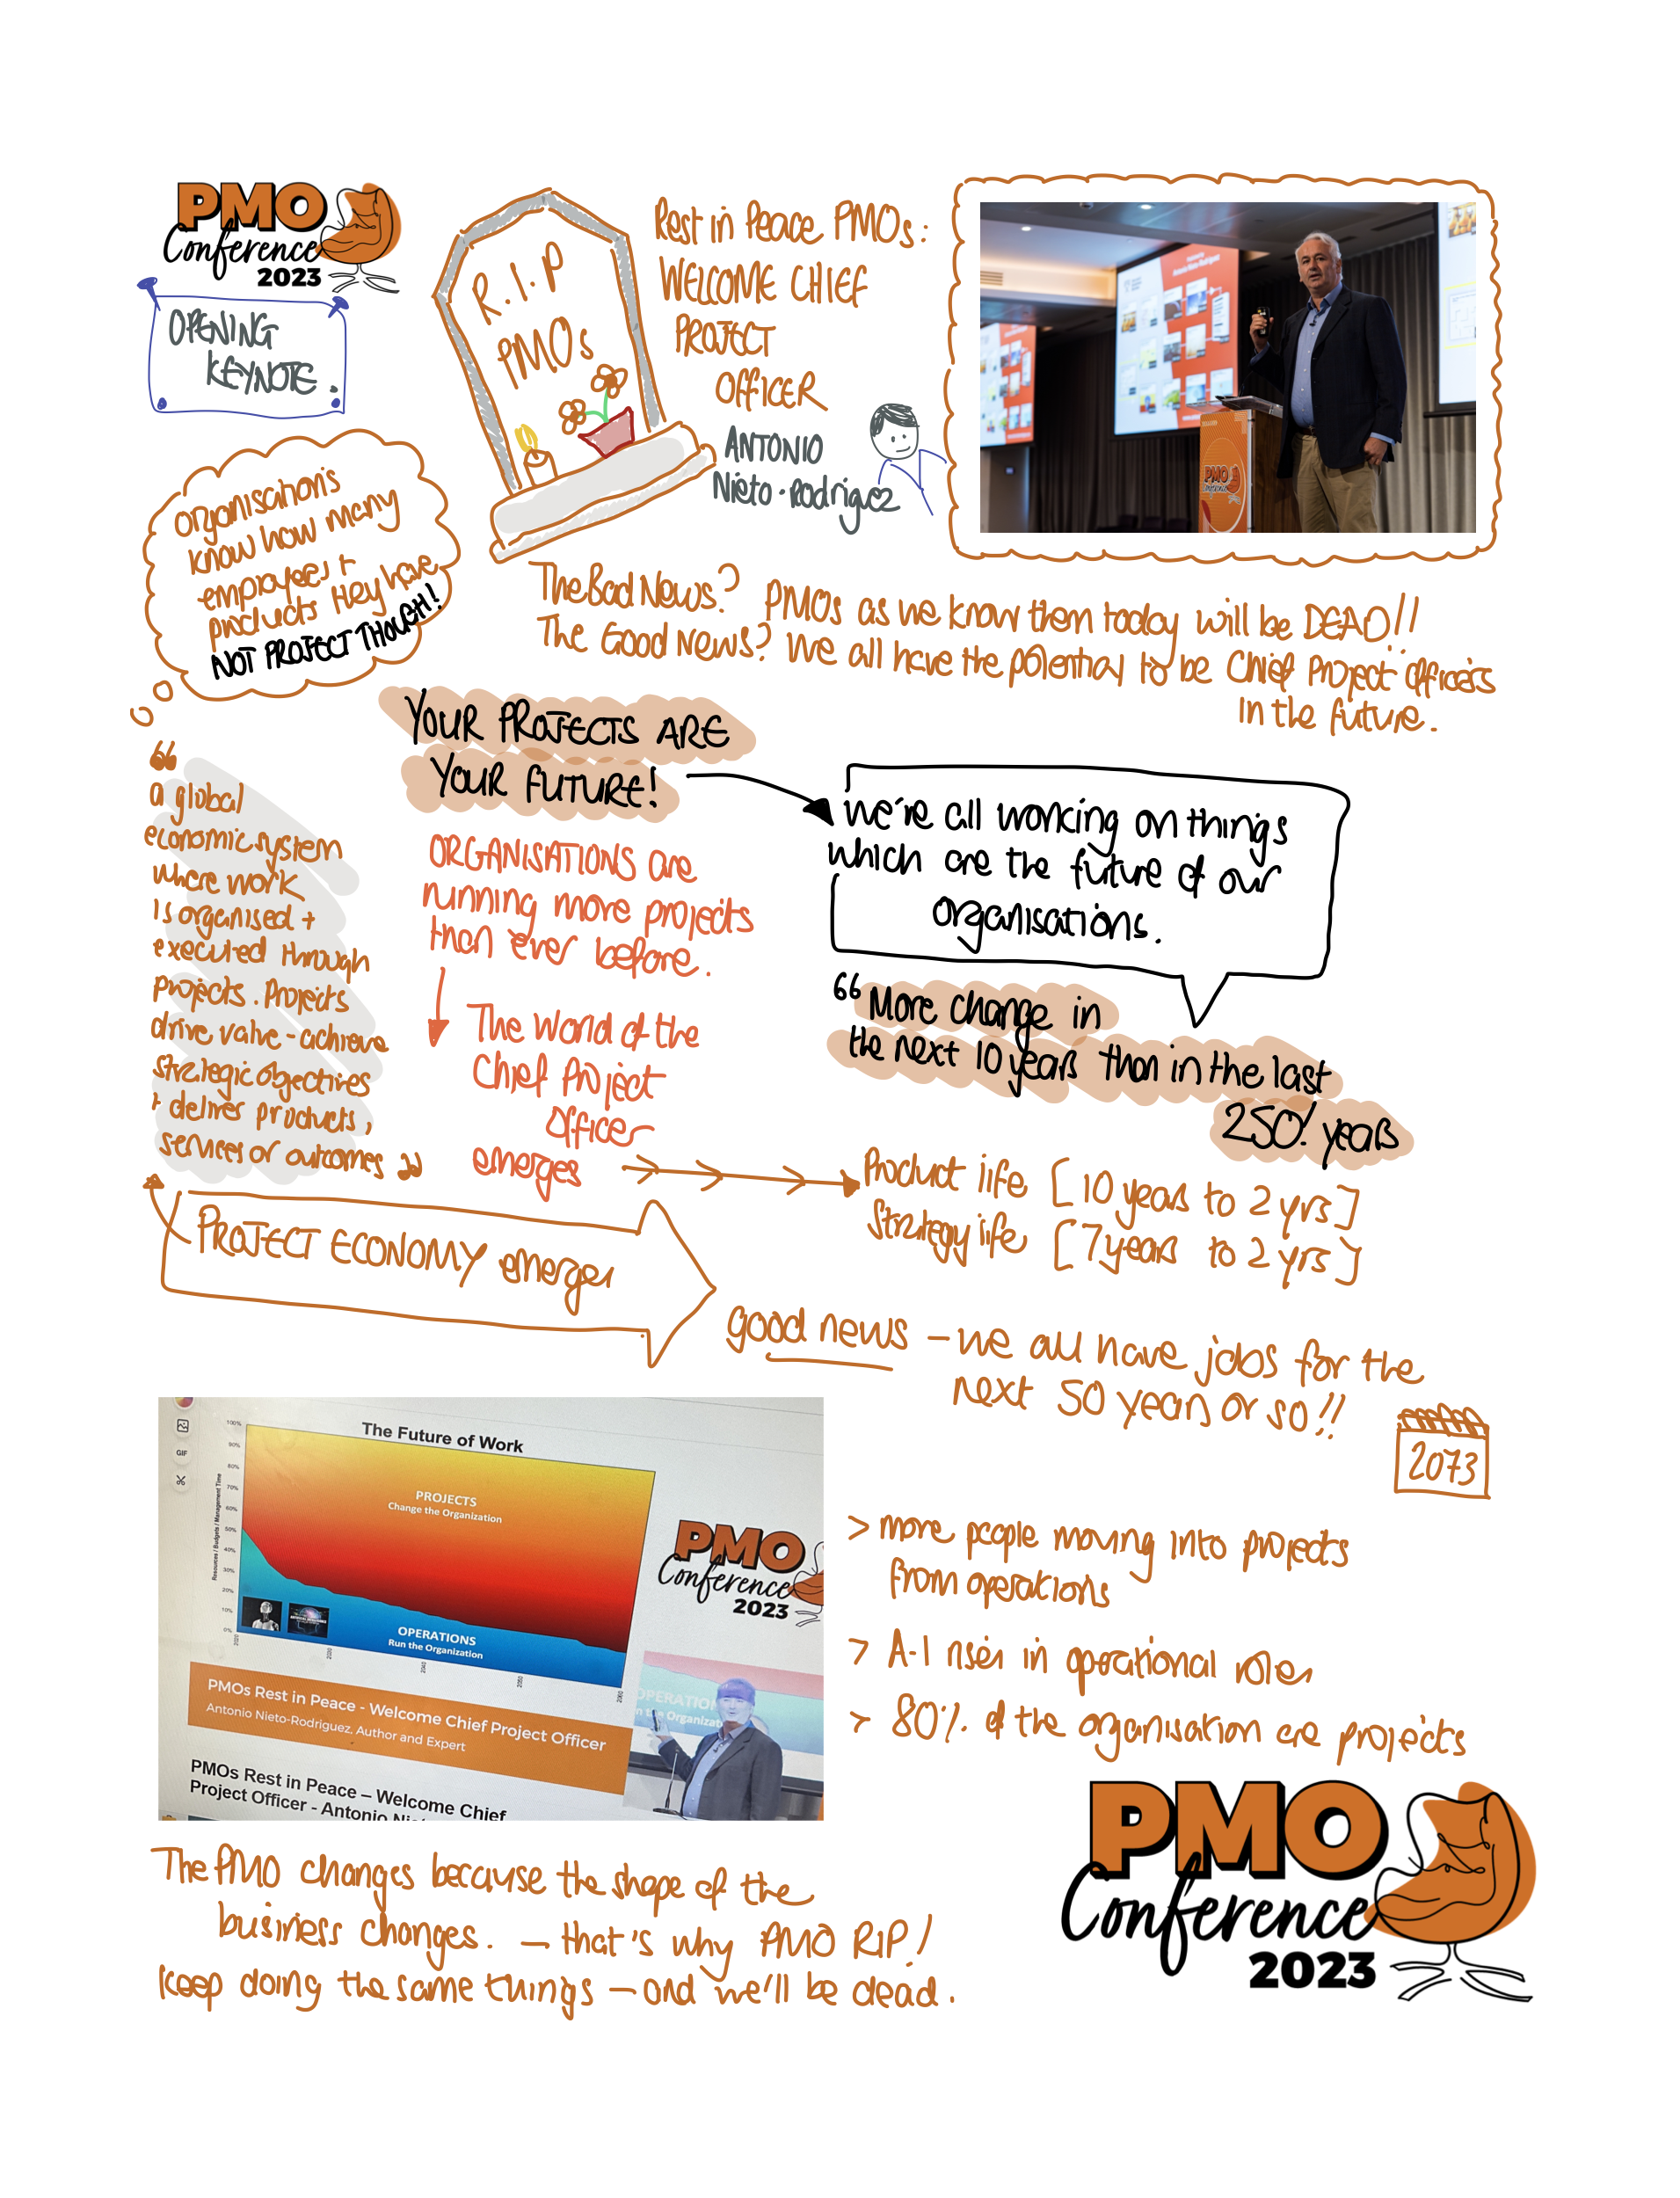 PMO
Conference
2023
OPENING
KEYNOTE.
R.I.P
PMOs
Rest in Peace PMOs:
WELCOME CHIEF
PROJECT
OFFICER
ANTONIO
Nieto-Rodriguez
PMO
organisations
know how many
employees +
products they have
NOT PROJECT THOUGH!
The Bad News? PMOs as we know them today will be DEAD!!
The Good News? We all have the potential to be Chief Project Officers
in the future.
YOUR PROJECTS ARE
YOUR FUTURE!
we're all working on things
which are the future of our
organisations.
“
a global
economic system
where work
is organised +
executed through
projects. Projects
drive value - achieve
strategic objectives
+ deliver products,
services or outcomes ”
ORGANISATIONS are
running more projects
than ever before.
The World of the
Chief Project
Officer
emerges
“More change in
the next 10 years than in the last
250! years
Product life [10 years to 2 yrs]
Strategy life [7 years to 2 yrs]
PROJECT ECONOMY emerges
good news - we all have jobs for the
next 50 years or so!!
2073
GIF
The Future of Work
Resources / Budgets / Management Time
100%
90%
80%
70%
60%
50%
40%
30%
20%
10%
0%
PROJECTS
Change the Organization
OPERATIONS
Run the Organization
2020
2030
2040
2050
2060
PMO
Conference
2023
PMOs Rest in Peace - Welcome Chief Project Officer
Antonio Nieto-Rodriguez, Author and Expert
PMOs Rest in Peace – Welcome Chief
Project Officer - Antonio
> more people moving into projects
from operations
> A-I rises in operational roles
> 80% of the organisation are projects
The PMO changes because the shape of the
business changes. - that's why PMO RIP!
Keep doing the same things - and we'll be dead.
PMO
Conference
2023